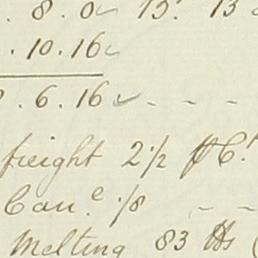 . 8 . 0 15. 13
. 10 . 16
. 6 . 16 - - -
freight 2 1/2
Can.e /8 - -
Melting 83 lbs (